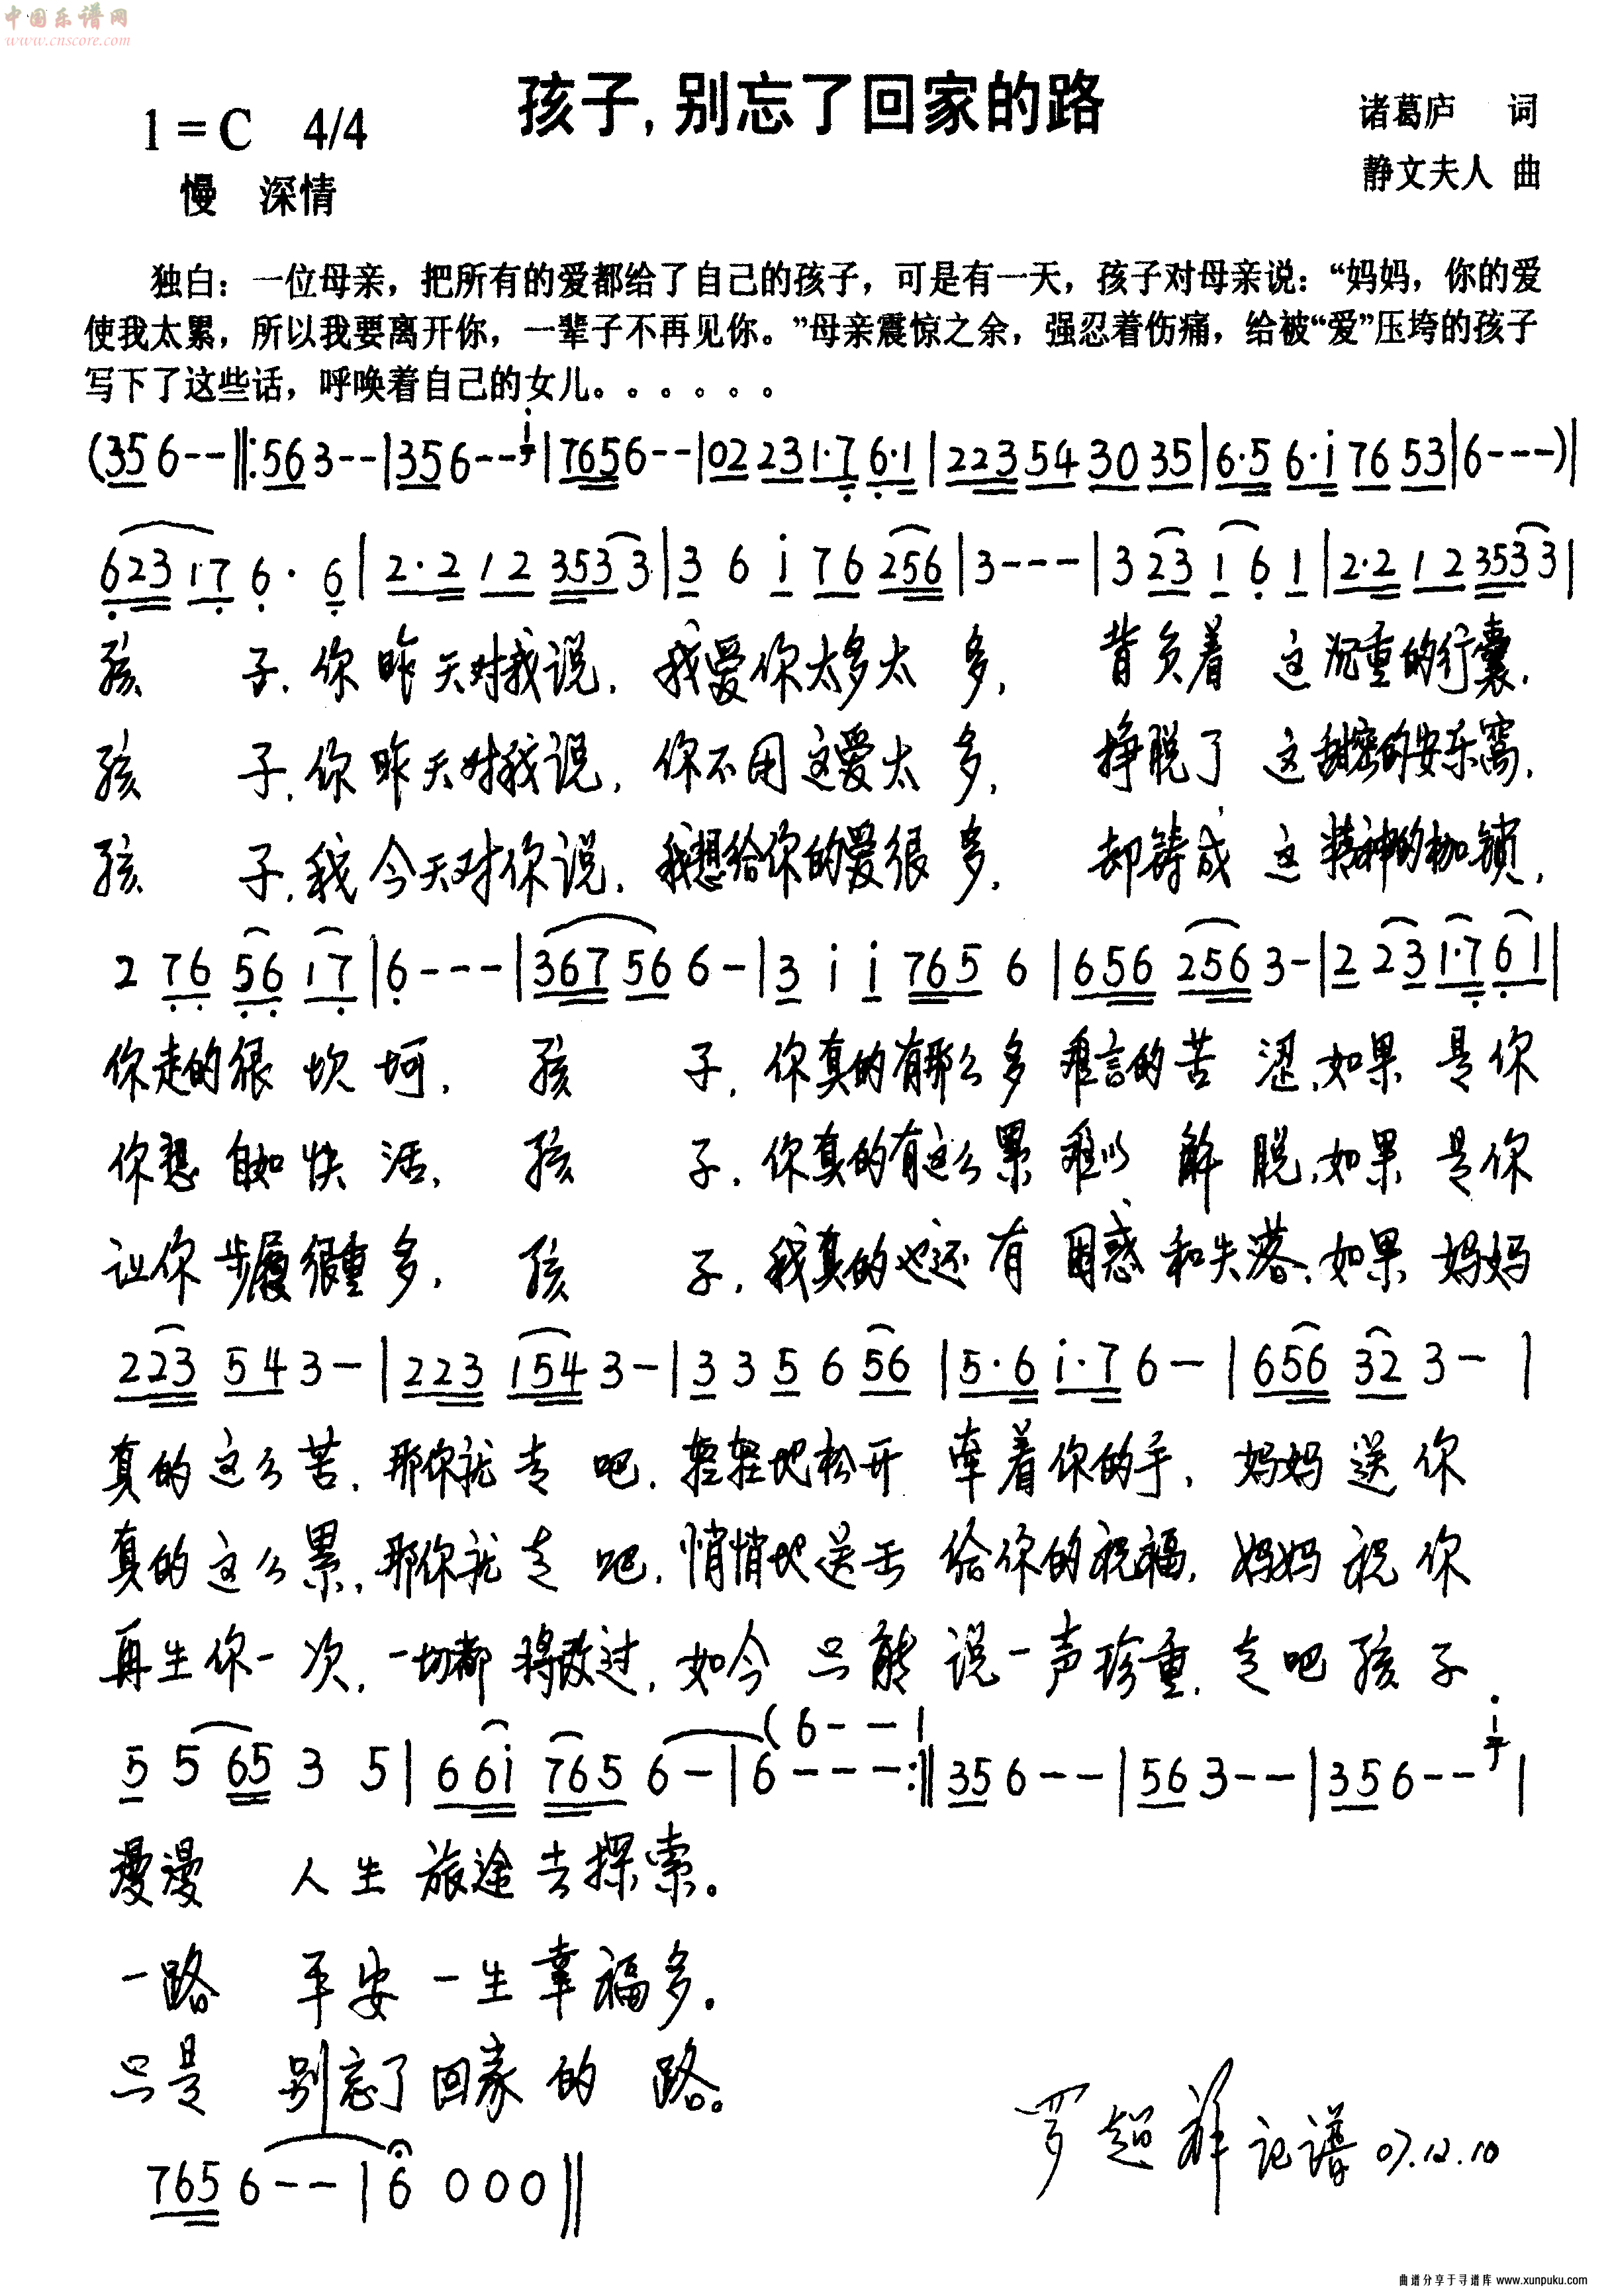 中国乐谱网
www.cnscore.com
孩子,别忘了回家的路
1=C 4/4
诸葛庐 词
慢 深情
静文夫人 曲
独白：一位母亲，把所有的爱都给了自己的孩子，可是有一天，孩子对母亲说：“妈妈，你的爱
使我太累，所以我要离开你，一辈子不再见你。”母亲震惊之余，强忍着伤痛，给被“爱”压垮的孩子
写下了这些话，呼唤着自己的女儿。。。。。。
(356--‖:563--|356--i于|7656--|02231·76·1|223543035|6·56·i7653|6---)|
623176·6|2·2123533|36i76256|3---|323161|2·2123533|
孩子,你昨天对我说,我爱你太多太多,背负着这沉重的行囊,
孩子,你昨天对我说,你不用这爱太多,挣脱了这甜密的安乐窝,
孩子,我今天对你说,我想给你的爱很多,却铸成这精神的枷锁,
2765617|6---|367566-|3ii7656|6562563-|2231·761|
你走的很坎坷,孩子,你真的有那么多难言的苦涩,如果是你
你想自如快活,孩子,你真的有这么累难以解脱,如果是你
让你步履很重多,孩子,我真的也还有困惑和失落,如果妈妈
223543-|2231543-|335656|5·6i·76-|656323-|
真的这么苦,那你就走吧,轻轻地松开牵着你的手,妈妈送你
真的这么累,那你就走吧,悄悄地送去给你的祝福,妈妈祝你
再生你一次,一切都将改过,如今只能说一声珍重,走吧孩子
(6--1
556535|66i7656-|6---:‖356--|563--|356--i于|
漫漫人生旅途去探索。
一路平安一生幸福多.
只是别忘了回家的路。
罗超群记谱07.12.10
7656--|6000‖
曲谱分享于寻谱库 www.xunpuku.com